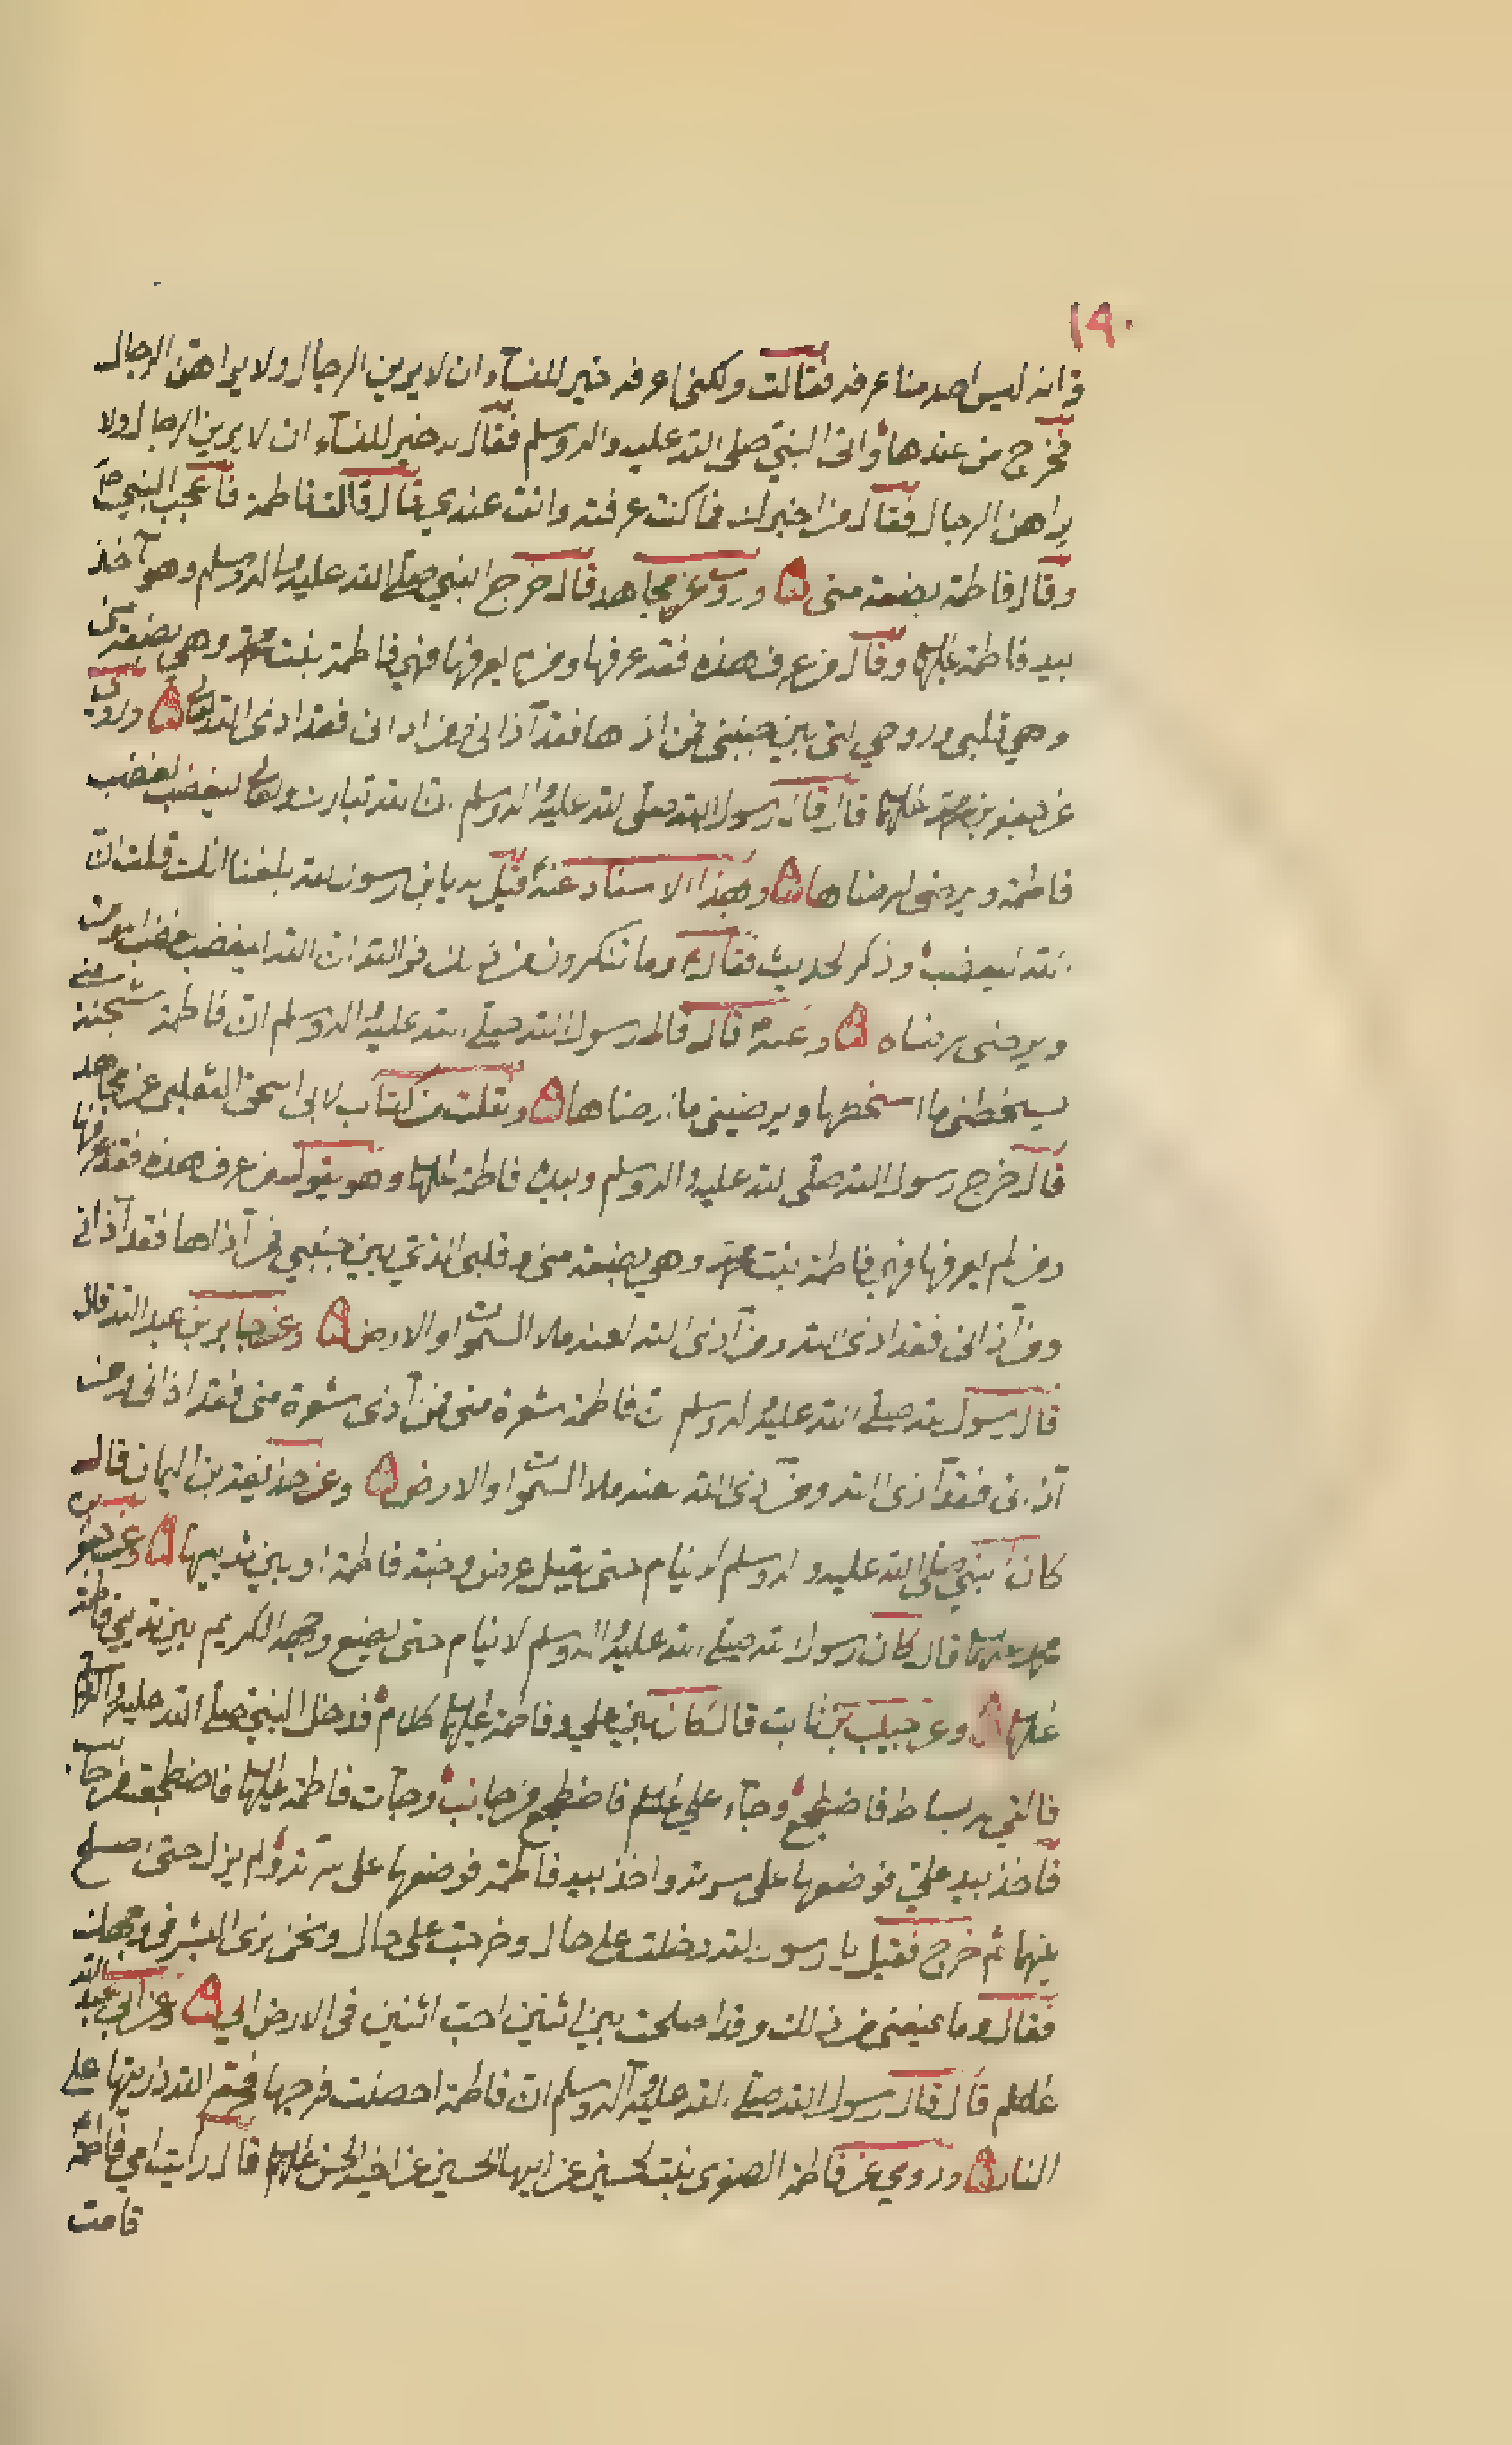 ١٩٠
وانه ليس احد منا عرفه فقالت ولكنى اعرفه خير للنسآء ان لا يرين الرجال ولا يراهن الرجال
فخرج من عندها واتى النبي صلى الله عليه واله وسلم فقال له خير للنسآء ان لا يرين الرجال ولا
يراهن الرجال فقال من اخبرك فما كنت عرفته وانت عندي قال قالت فاطمة فاعجب النبي ص
وقال فاطمة بضعة منى وروى عن مجاهد قال خرج النبي صلى الله عليه واله وسلم وهو آخذ
بيد فاطمة عليها وقال من عرف هذه فقد عرفها ومن لم يعرفها فهي فاطمة بنت محمد وهي بضعة منى
وهي قلبى وروحي التى بين جنبيى فمن اذاها فقد آذانى ومن اذانى فقد اذى الله تعالى وروي
عن جعفر بن محمد عليهما قال قال رسول الله صلى الله عليه واله وسلم ان الله تبارك وتعالى ليغضب لغضب
فاطمة ويرضى لرضاها وبهذا الاسناد عنه قيل له يا بن رسول الله بلغنا انك قلت ان
الله ليغضب وذكر الحديث فقال وما تنكرون من ذلك فوالله ان الله ليغضب لغضب المومن
ويرضى لرضاه وعنه قال قال رسول الله صلى الله عليه واله وسلم ان فاطمة شجنة منى
يسخطنى ما اسخطها ويرضينى ما ارضاها ونقلت من كتاب لابى اسحق الثعلبى عن مجاهد
قال خرج رسول الله صلى الله عليه واله وسلم وبيده فاطمة عليها وهو يقول من عرف هذه فقد عرفها
ومن لم يعرفها فهي فاطمة بنت محمد وهي بضعة منى وقلبى الذي بين جنبيي فمن آذاها فقد آذانى
ومن آذانى فقد اذى الله ومن آذى الله لعنه ملا السموات والارض وعن جابر بن عبد الله قال
قال رسول الله صلى الله عليه واله وسلم ان فاطمة شعرة منى فمن آذى شعرة منى فقد اذانى ومن
آذانى فقد آذى الله ومن آذى الله لعنه ملا السموات والارض وعن حذيفة بن اليمان قال
كان النبي صلى الله عليه واله وسلم لا ينام حتى يقبل عرض وجنة فاطمة او بين ثدييها وعن جعفر بن
محمد عليهما قال كان رسول الله صلى الله عليه واله وسلم لا ينام حتى يضع وجهه الكريم بين ثديي فاطمة
عليها وعن حبيب بن ثابت قال كان بين علي وفاطمة عليهما كلام فدخل النبي صلى الله عليه واله
فالقي له بساط فاضطجع وجآء علي عليه السلم فاضطجع من جانب وجآت فاطمة عليها فاضطجعت من جانب
فاخذ بيد علي فوضعها على سرته واخذ بيد فاطمة فوضعها على سرته ولم يزل حتى اصلح
بينهما ثم خرج فقيل يا رسول الله دخلت على حال وخرجت على حال ونحن نرى البشر في وجهك
فقال وما يمنعنى من ذلك وقد اصلحت بين اثنين احب اثنين فى الارض الي وعن ابي عبد الله
عليه السلم قال قال رسول الله صلى الله عليه وآله وسلم ان فاطمة احصنت فرجها فحرم الله ذريتها على
النار وروي عن فاطمة الصغرى بنت الحسين عن ابيها الحسين عن اخيه الحسن عليهم قال رايت امي فاطمة
قامت